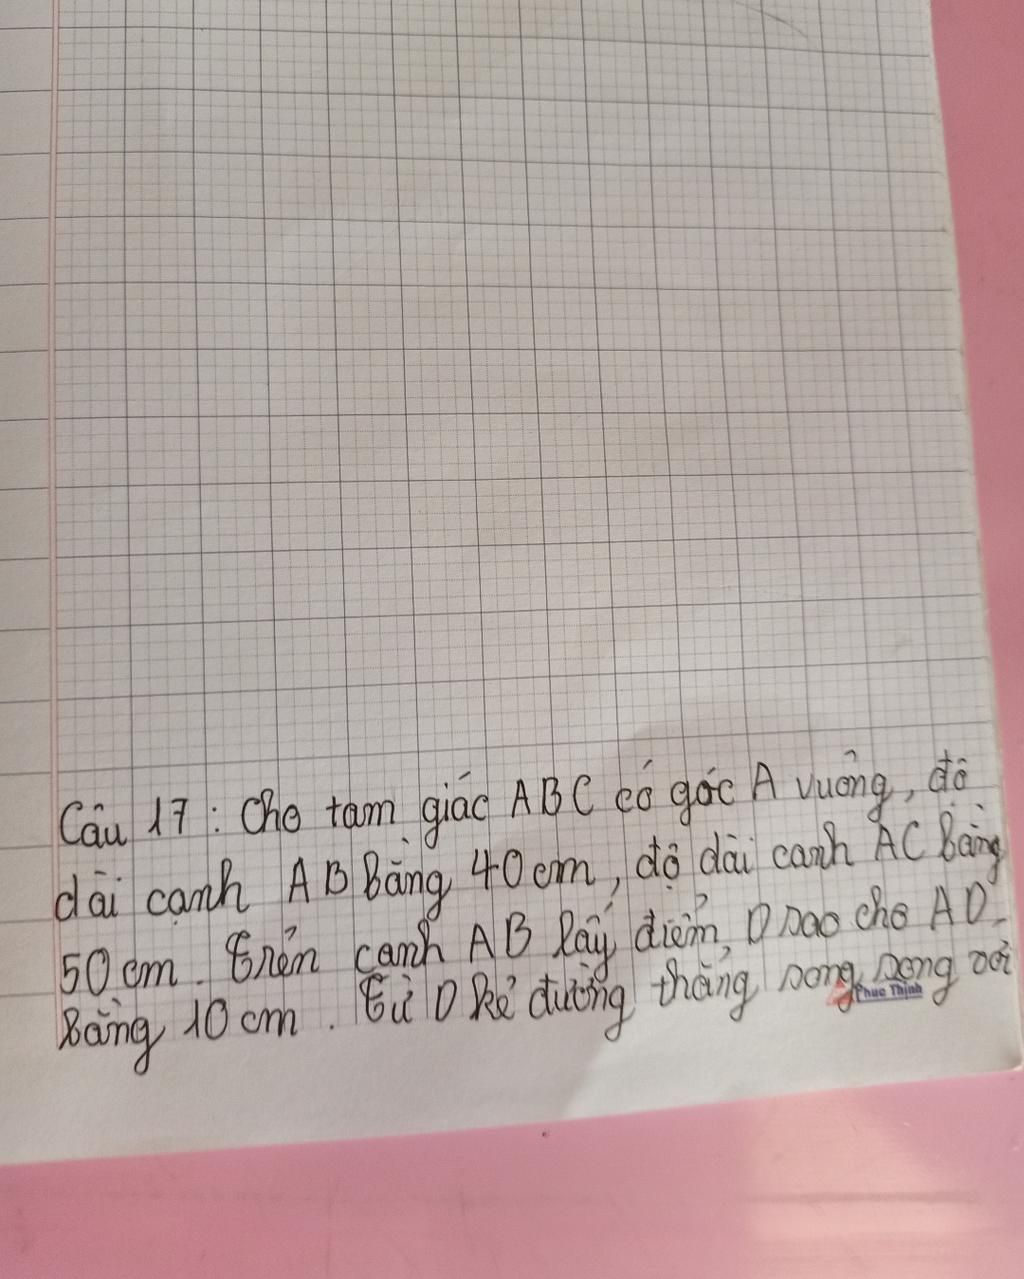 Câu 17: Cho tam giác ABC có góc A vuông, độ
dài cạnh AB bằng 40 cm, độ dài cạnh AC bằng
50 cm. Trên cạnh AB lấy điểm D sao cho AD
bằng 10 cm. Từ D kẻ đường thẳng song song với
Phuc Thịnh